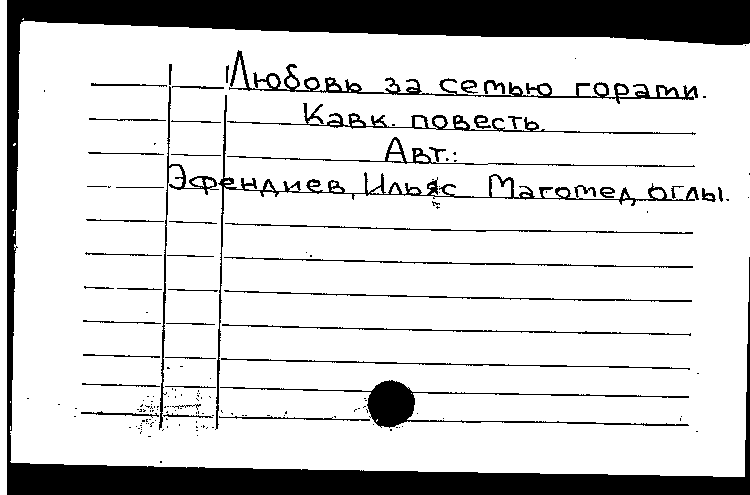 Любовь за семью горами.
Кавк. повесть.
Авт.:
Эфендиев, Ильяс Магомед оглы.